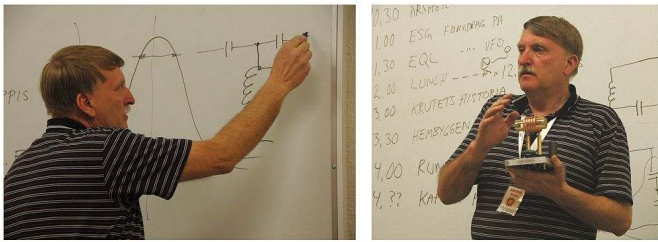 OPPIS
0,30 ÅRSMÖTE
1.00 ESG, FÖREDRAG PÅ
1.30 EQL -"- VFO
2.00 LUNCH - - - - - 12.
3.00 KRUTETS HISTORIA
3,30 HEMBYGGEN
4,00
4,??